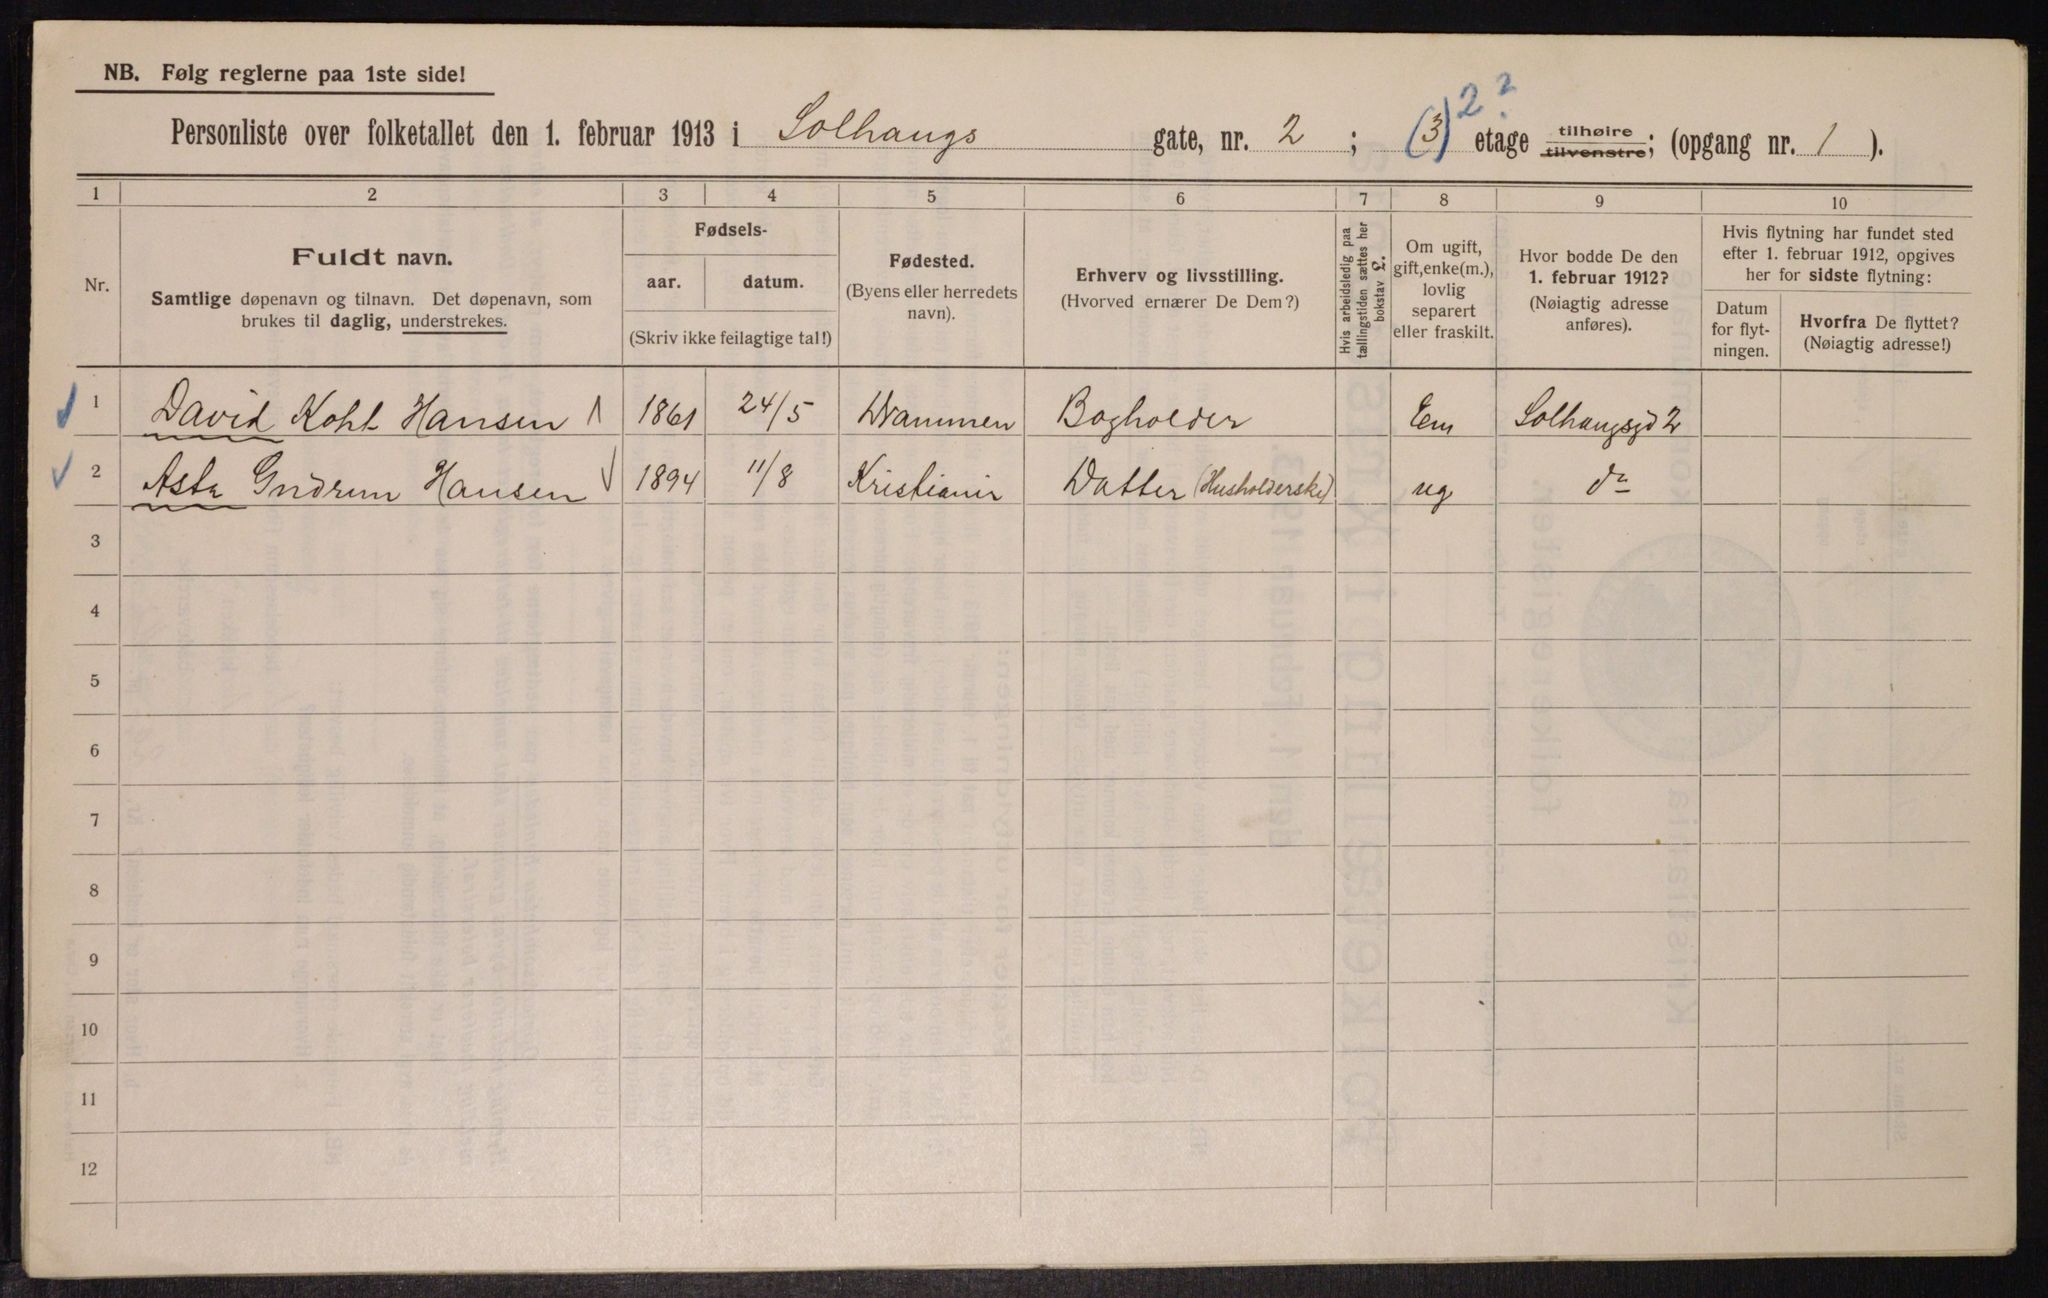 NB. Følg reglerne paa 1ste side!
Personliste over folketallet den 1. februar 1913 i Solhaugs gate, nr. 2 ; (3) 2? etage tilhøire tilvenstre; (opgang nr. 1 ).
1 2 3 4 5 6 7 8 9 10
Nr.
Fuldt navn.
Samtlige døpenavn og tilnavn. Det døpenavn, som
brukes til daglig, understrekes.
Fødsels-
aar. datum.
(Skriv ikke feilagtige tal!)
Fødested.
(Byens eller herredets
navn).
Erhverv og livsstilling.
(Hvorved ernærer De Dem?)
Hvis arbeidsledig paa
tællingstiden sættes her
bokstav L.
Om ugift,
gift, enke(m.),
lovlig
separert
eller fraskilt.
Hvor bodde De den
1. februar 1912?
(Nøiagtig adresse
anføres).
Hvis flytning har fundet sted
efter 1. februar 1912, opgives
her for sidste flytning:
Datum
for flyt-
ningen.
Hvorfra De flyttet?
(Nøiagtig adresse!)
1 David Kohl Hansen 1861 24/5 Drammen Bogholder Em Solhaugsgd 2
2 Asta Gudrun Hansen 1894 11/8 Kristiania Datter (Husholderske) ug do
3
4
5
6
7
8
9
10
11
12